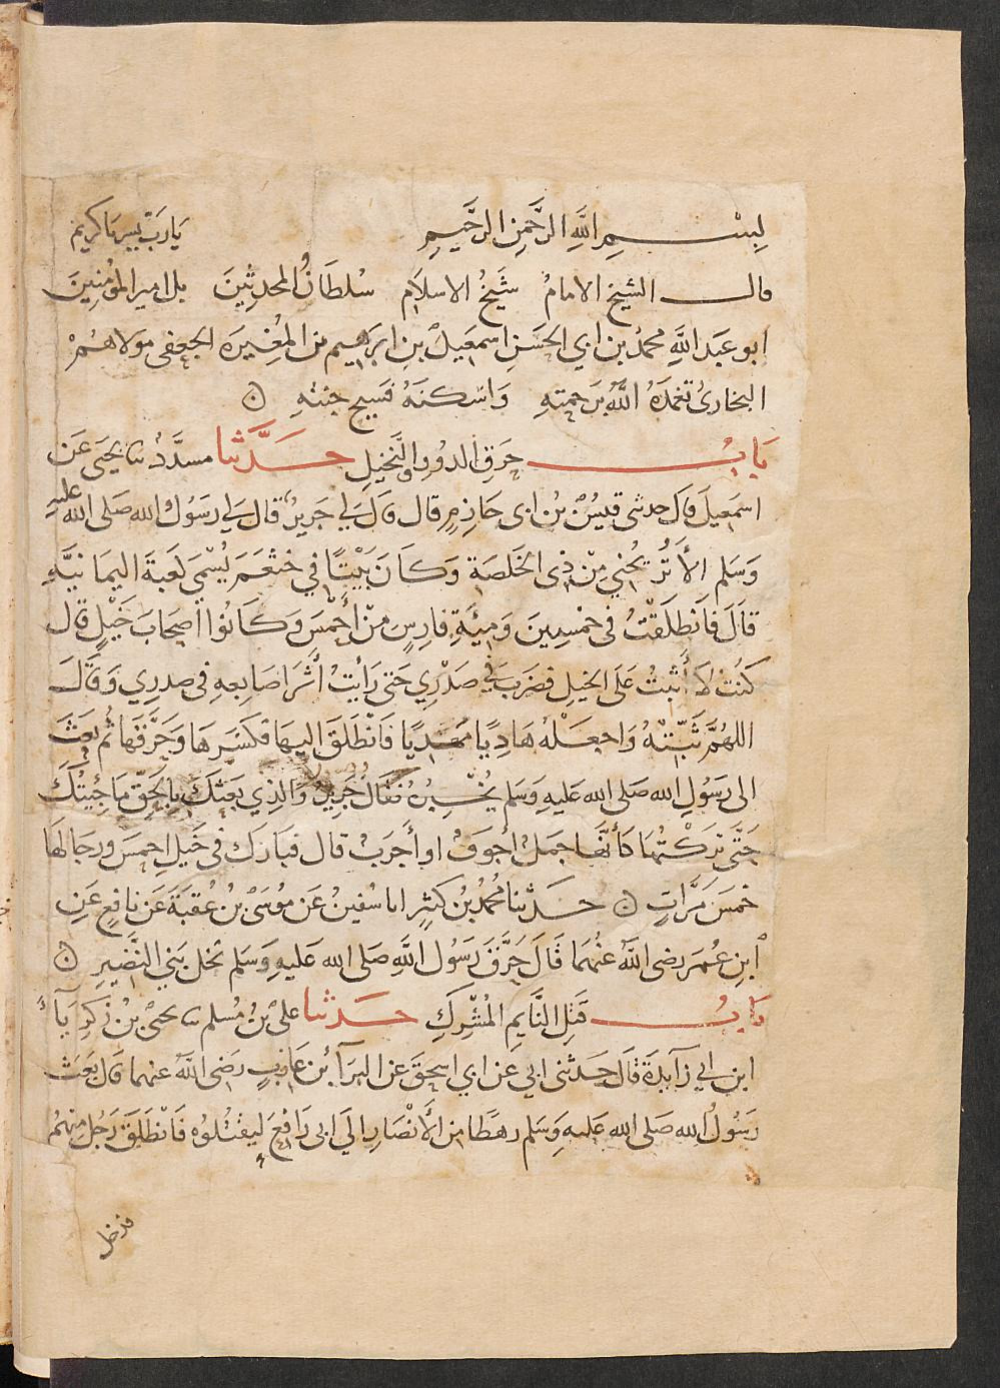 بِسْمِ اللَّهِ الرَّحْمنِ الرَّحِيمِ يَا رَبّ يسر يا كريم
قال الشيخ الامامُ شَيخُ الاسلام سُلطَانُ المحدثِينَ بل امير المؤمِنينَ
ابو عَبد اللَّهِ محمدُ بن ابي الحَسَنِ اسمعِيلَ بنِ ابرَاهِيم بن المغِيرَة الجعفى مولاهُمْ
البخارىُ تغمدَهُ اللَّهُ برَحمتهِ وَاسْكنَهُ فَسِيح جنتهِ ن
بَابُ حَرَقِ الدُورِ والنَّخِيلِ حَدَّثنا مسدَّدٌ ثنا يحيَى عَن
اسمعيلَ قال حدثنى قيسُ بْنُ ابى حَازِمٍ قال قال لي جَرِيرٌ قال لِي رَسُولُ الله صَلى الله عليهِ
وَسَلم الأ تُرِيحُنِي مِنْ ذِى الخَلصَةِ وَكَانَ بَيْتًا في خثعَمَ يُسْمَى كعبَةَ اليمَانيَّهِ
قالَ فَانطَلَقْتُ فى خمسِينَ وَمِيَّةِ فارِسٍ مِنْ أحْمسَ وَكَانُوا أصحَابَ خَيْلٍ قال
كنُت لا أثبتُ عَلَى الخيلِ فضرَبَ في صَدْرِي حَتى رَأيتُ أثَرَ اصَابِعِهِ فى صدرِي وَقَالَ
اللهُمَّ ثَبّتْهُ وَاجعَلْهُ هَادِيًا مَهديًا فَانْطَلَقَ اليهَا فكسَرهَا وَحَرَّقَهَا ثُم بَعَثَ
الى رَسُولِ الله صَلى الله عَليهِ وَسَلم يُخْبِرُهُ فقَالَ جَرِيرٌ وَالذِي بَعَثكَ بِالحَقّ مَا جِيْتُكَ
حَتَّى تَركْتُهَا كَأنَّها جملٌ أجْوَفُ او أجرَبُ قال فبَارَك فى خَيلِ احمسَ ورجَالهَا
خمسَ مَرَّاتٍ ن حَدثنا مُحمدُ بن كثيرٍ انا سُفينُ عَن مُوسَى بْنِ عُقبَةَ عَن نافِعٍ عَنِ
ابنِ عُمَرَ رضى اللَّهُ عنْهُما قَالَ حَرَّقَ رَسُولُ اللَّهِ صَلى الله عَليهِ وَسَلم نخلَ بَنِي النَّضِيرِ ن
بَابُ قَتلِ النَّايِمِ المُشْرِكِ حَدثنا علىُ بنُ مُسلم ثنا يحيَى بنُ زَكرِيَآءَ
ابن ابي زَآيدَةَ قالَ حَدثنى ابي عن ابي اسحقَ عن البَرَآء بن عَازِبٍ رَضى اللَّهُ عنهما قال بَعَثَ
رَسُولُ الله صَلى الله عَليهِ وَسَلم رهطًا مِن الأنْصَارِ إلى ابى رَافِعٍ لِيقتُلُوهُ فَانْطلَقَ رَجُلٌ مِنهُم
فدخل